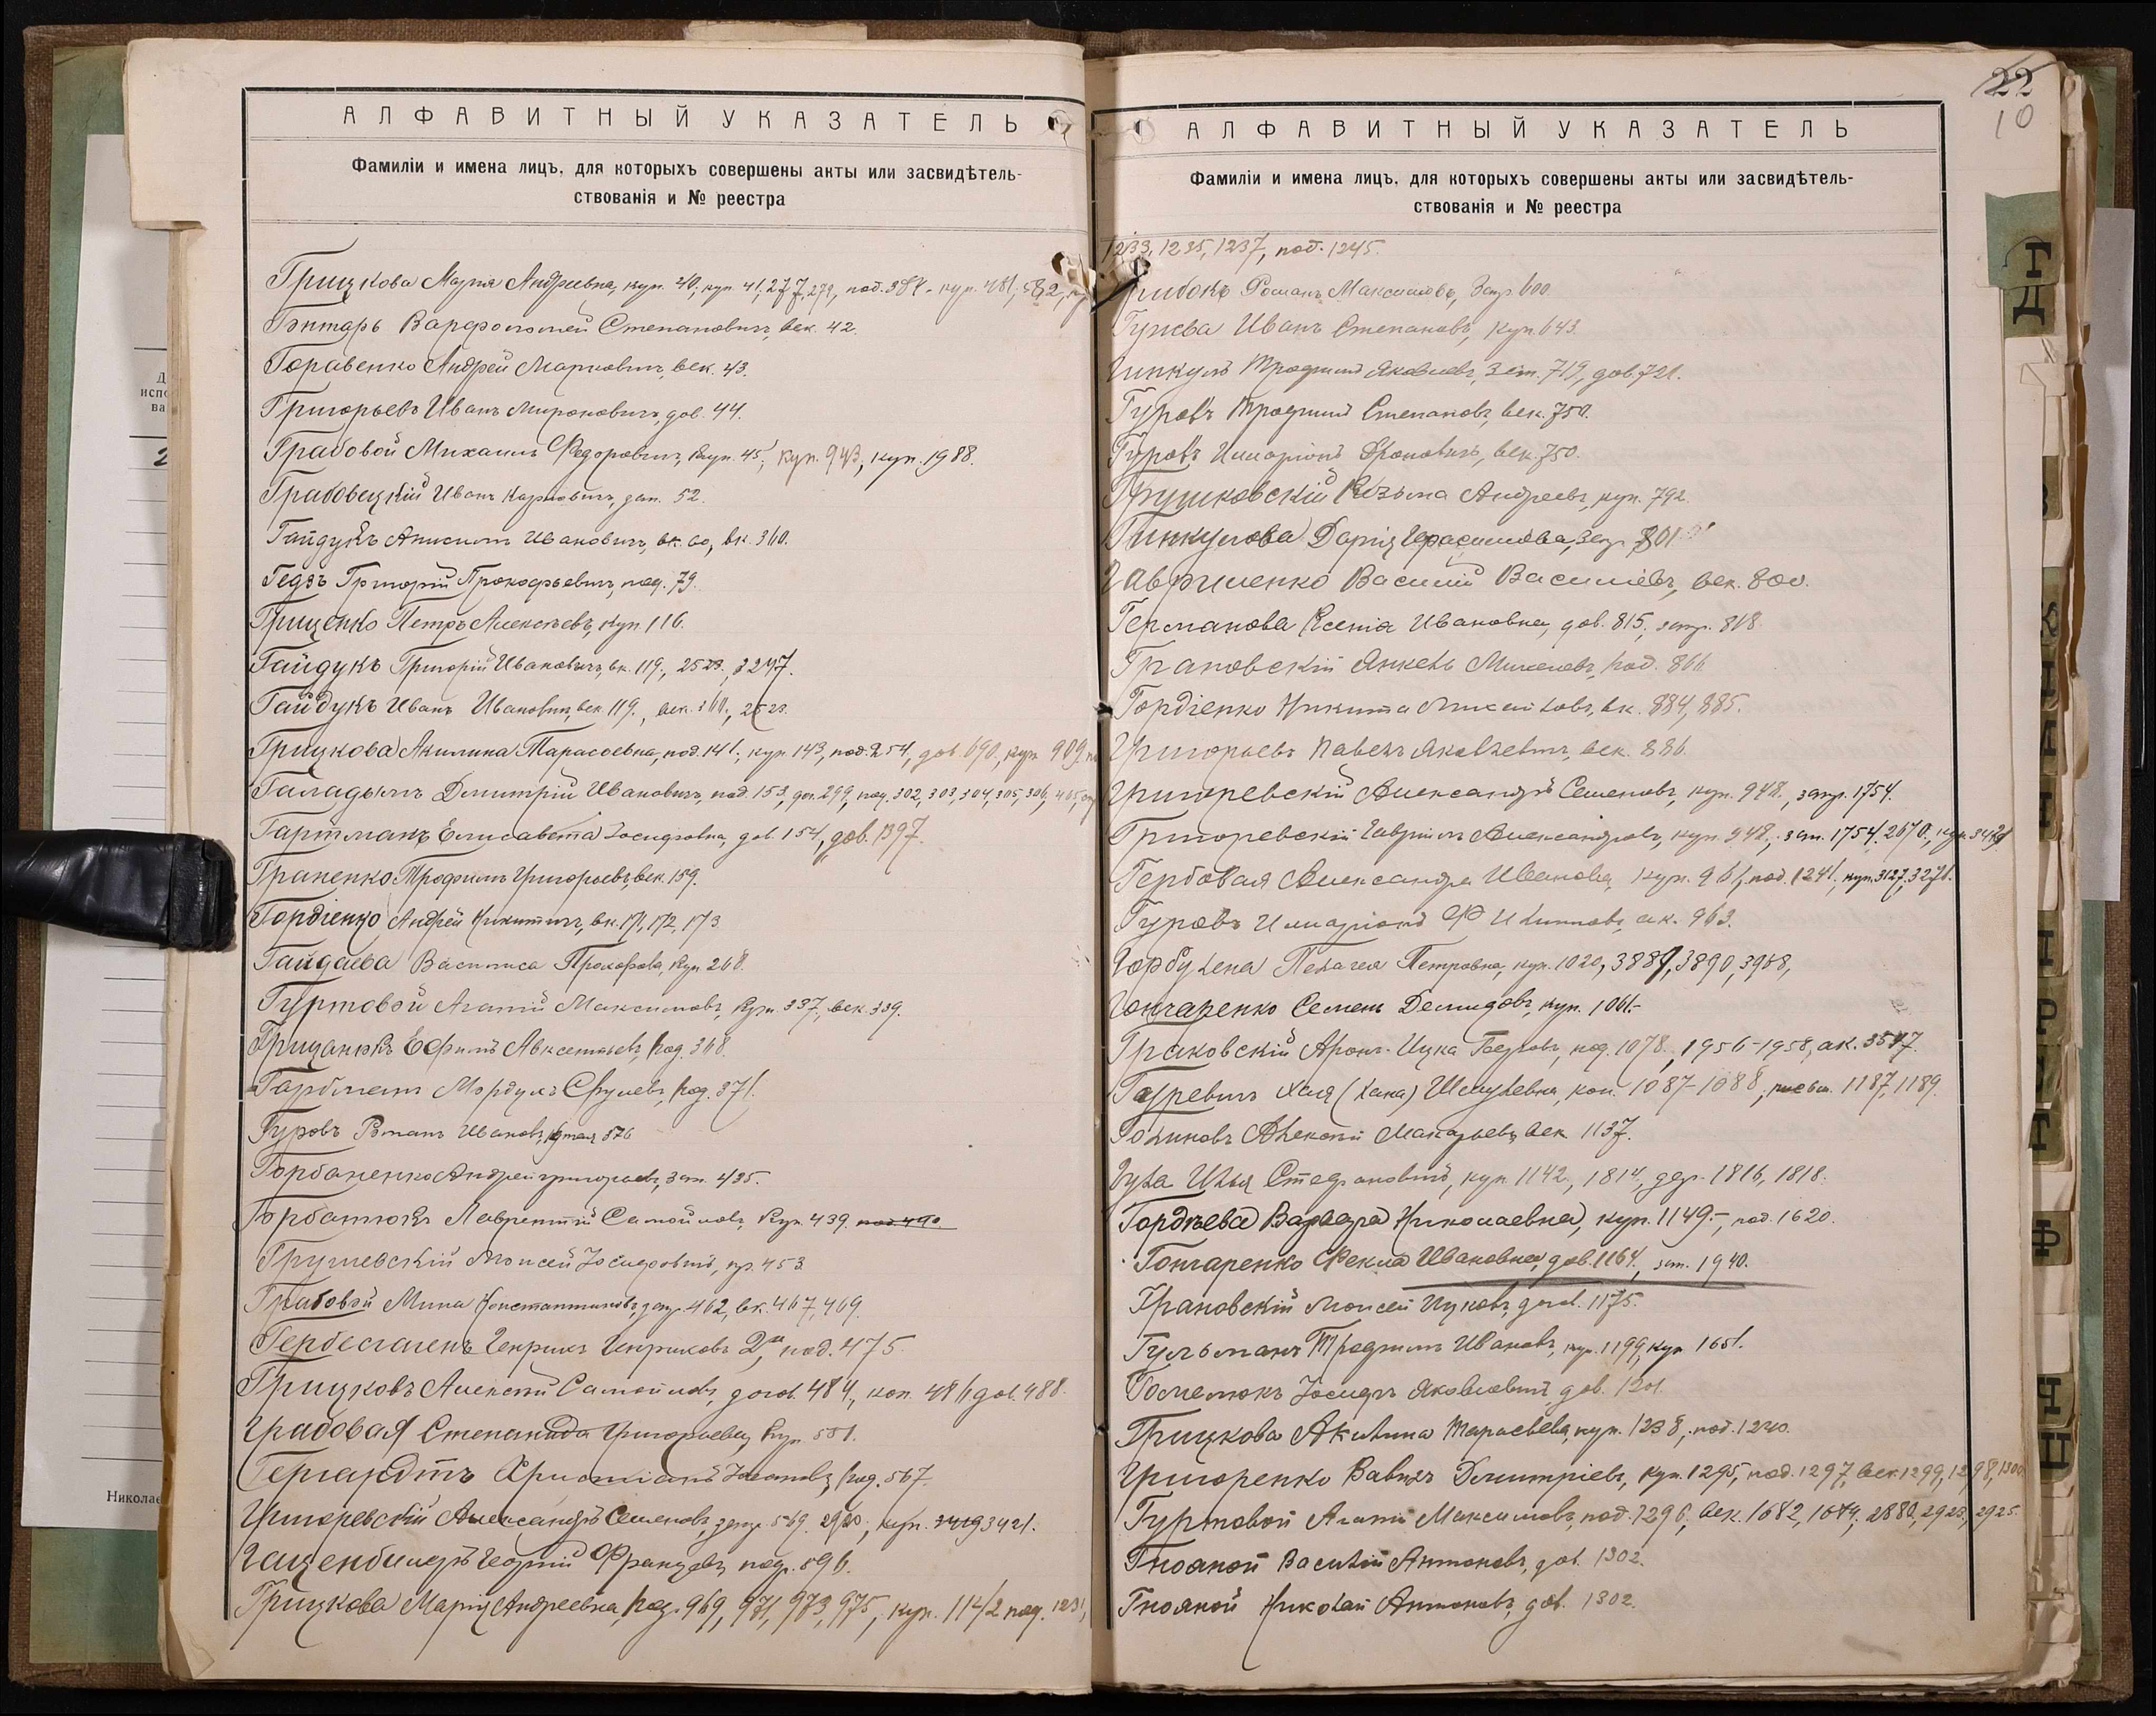 АЛФАВИТНЫЙ УКАЗАТЕЛЬ
Фамиліи и имена лицъ, для которыхъ совершены акты или засвидѣтель-
ствованія и № реестра
Грицкова Марія Андреевна, куп. 40, куп 41, 277, 279, под. 384 - куп. 481, 582,
Гонтарь Варфоломей Степановичъ, век. 42.
Горавенко Андрей Марковичъ, век. 43.
Григорьевъ Иванъ Мироновичъ, дов. 44.
Грабовой Михаилъ Федоровичъ, куп. 45, куп. 943, куп. 1988.
Грабовецкій Иванъ Карповичъ, 52.
Гайдукъ Анисимъ Ивановичъ, вк. 60, вк. 360.
Гедзъ Григорій Прокофьевичъ, под. 79.
Грищенко Петръ Алексѣевъ, куп. 116.
Гайдукъ Григорій Ивановичъ, вк. 119, 2523, 3247.
Гайдукъ Иванъ Ивановичъ, век 119, век. 360, 2523.
Грицкова Акилина Тарасовна, под. 141, куп. 143, под. 254, дов. 690, куп. 909
Галадымъ Димитрій Ивановичъ, под. 153, дог. 299, под. 302, 303, 304, 305, 306, 405,
Гартманъ Елисавета Іосифовна, дов. 154, дов. 1397.
Граненко Трофимъ Григорьевъ, век. 159.
Гордіенко Андрей Никитичъ, вк. 171, 172, 173
Гайдаева Василиса Прокофова, куп. 268.
Гуртовой Агапій Максимовъ, куп. 337, век. 339.
Грицанюкъ Ефимъ Авксентьевъ, под. 368.
Мордухъ Сруловъ, под. 371.
Гуровъ Романъ Ивановъ, 576
Горбаненко Андрей Григорьевъ, зап. 435.
Горбатюкъ Лаврентій Самойловъ, куп. 439. под 490.
Грушевскій Моисей Іосифовичъ, пр. 453
Грабовой Мина Константиновъ, запр. 462, вк. 467, 469.
Генрихъ Генриховъ 2й, под. 475.
Грицковъ Алексѣй Самойловъ, догов. 484, коп. 486 дов. 488.
Грабовая Степанида Григорьевна, куп. 551.
Гергардтъ Христіанъ Іогановъ, под. 567.
Григоревскій Александръ Семеновъ, запр. 569. 2920, куп. 3419 3421.
Гаценбиллеръ Георгій Францовъ, под. 596.
Грицкова Марія Андреевна, под. 969, 971, 973, 975, куп. 1142 под. 1231,
22
10
АЛФАВИТНЫЙ УКАЗАТЕЛЬ
Фамиліи и имена лицъ, для которыхъ совершены акты или засвидѣтель-
ствованія и № реестра
1233, 1235, 1237, под. 1245.
Грибокъ Романъ Максимовъ, запр. 600.
Иванъ Степановъ, куп. 643.
Гинкулъ Трофимъ Яковлевъ, зап. 719, дов. 721.
Гуровъ Трофимъ Степановъ, век. 750.
Гуровъ Иларіонъ век. 750.
Грушковскій Козьма Андреевъ, куп. 792.
Гинкулова Дарія Герасимова, запр. 801
Гавриленко Василій Василіевъ, век. 800.
Германова Ксенія Ивановна, дов. 815, запр. 818.
Грановскій Янкель под. 866
Гордіенко Никита вк. 884, 885.
Григорьевъ Павелъ Яковлевичъ, век. 886.
Григоревскій Александръ Семеновъ, куп. 942, запр. 1754.
Григоревскій Гавріилъ Александровъ, куп. 942, зап. 1754, 2670, куп. 3421
Гербовая Александра Иванова, куп. 961, под. 1241, куп. 3127, 3271.
Гуровъ Иларіонъ Филиповъ, ак. 963.
Горбулена Пелагея Петровна, куп. 1020, 3889, 3890, 3968,
Гончаренко Семенъ Демидовъ, куп. 1061.-
Граковскій Аронъ-Ицка под. 1078, 1956-1958, ак. 3547.
Гауревичъ Хая (Хана) Шмулевна, коп. 1087-1088, 1187, 1189.
Голиковъ Алексѣй Макарьевъ, век 1137.
Гула Илья Стефановичъ, куп. 1142, 1814, дер. 1816, 1818.
Гордѣева Варвара Николаевна, куп. 1149.-, под. 1620.
Гончаренко Фекла Ивановна, дов. 1164, зап. 1940.
Грановскій Моисей Ицковъ, догов. 1175.
Гульманъ Трофимъ Ивановъ, куп. 1199, куп 1651.
Іосифъ Яковлевичъ, дов. 1201.
Грицкова Акилина Тарасьевна, куп. 1238, под. 1240.
Григоренко Вавилъ Димитріевъ, куп. 1295, под. 1297, век. 1299, 1298, 1300
Гуртовой Агапій Максимовъ, под. 1296, век. 1682, 1684, 2880, 2923, 2925.
Гнояной Василій Антоновъ, дов. 1302.
Гнояной Николай Антоновъ, дов. 1302.
Николае
Г
Д